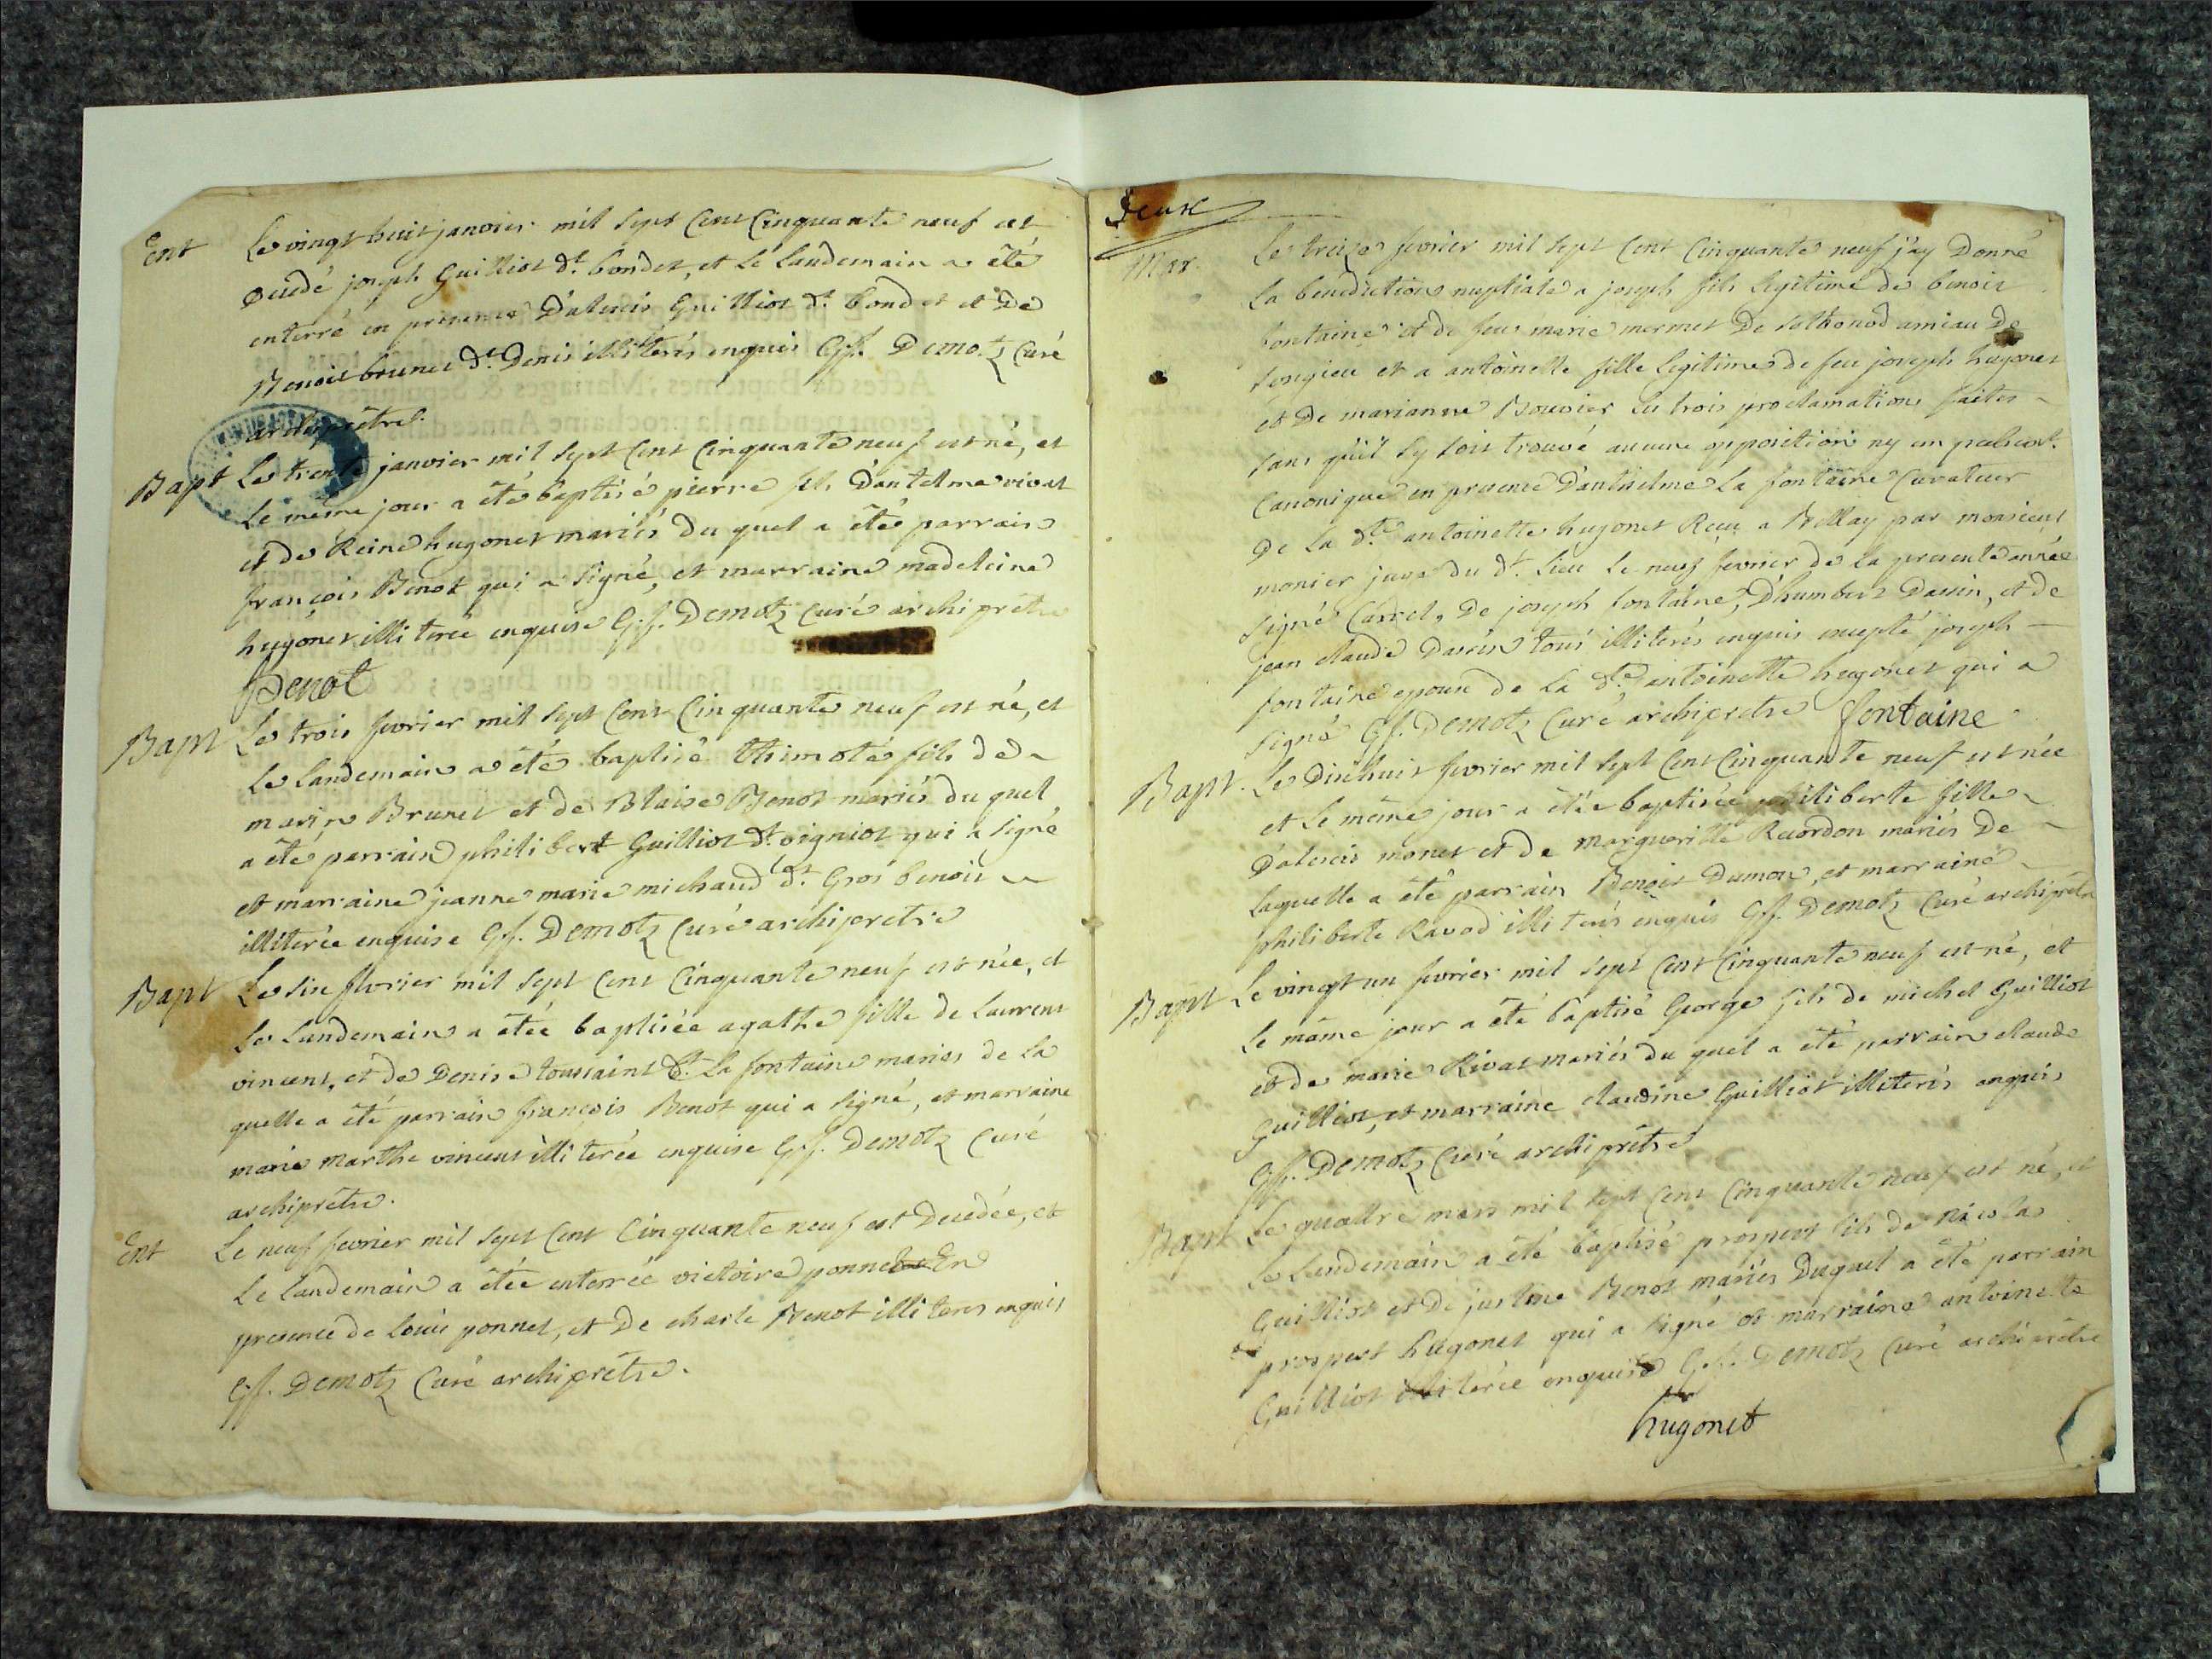 Ent
Le vingt huit janvier mil sept Cent Cinquante neuf est
Decedé joseph Guilliot dt. bondet, et le landemain a été
enterré en presence D'alexis Guilliot dt. bondet et De
Benoit brunet dt. Denis illiterés enquis Gf. Demotz Curé
archiprêtre.
Bapt
Le trente janvier mil sept Cent Cinquante neuf est né, et
le même jour a été baptisé pierre fils D'antelme
et de Reine hugonet mariés du quel a été parrain
françois Benot qui a signé, et marraine madeleine
hugonet illiterée enquise Gf. Demotz Curé archiprêtre
Benot
Bapt
Le trois fevrier mil sept Cent Cinquante neuf est né, et
le landemain a été baptisé thimoté fils de
marin Brunet et de Blaise Benot mariés du quel
a été parrain philibert Guilliot dt. oigniot qui a signé
et marraine jeanne marie michaud dt. Gros benoit
illiterée enquise Gf. Demotz Curé archipretre
Bapt
Le six fevrier mil sept Cent Cinquante neuf est née, et
le landemain a étée baptisée agathe fille de Laurent
vincent, et de Denise toussaint dt. La fontaine mariés de la
quelle a été parrain françois Benot qui a signé, et marraine
marie marthe vincent illiterée enquise Gf. Demotz Curé
archiprêtre.
Ent
Le neuf fevrier mil sept Cent Cinquante neuf est Decedée, et
le landemain a étée enterrée victoire ponnet En
presence de louis ponnet, et De charle Benot illiteres enquis
Gf. Demotz Curé archiprêtre.
Deux
Mar.
Le treize fevrier mil sept Cent Cinquante neuf j'ay Donné
la benediction nuptiale a joseph fils legitime de benoit
fontaine et de feue marie mermet De sothonod amiau De
songieu et a antoinette fille legitime de feu joseph hugonet
et De marianne Bouvier les trois proclamations faites
sans qu'il sy soit trouvé aucune opposition ny
Canonique en presence D'anthelme La fontaine Curateur
De la dte. antoinette hugonet Reçu a Bellay par monsieur
monier juge du dt. lieu le neuf fevrier de la presente année
signé Carrel, De joseph fontaine, D'humbert Dassin, et de
jean claude Dassin tous illiterés enquis excepté joseph
fontaine epoux de la dte. antoinette hugonet qui a
signé Gf. Demotz Curé archipretre fontaine
Bapt.
Le Dixhuit fevrier mil sept Cent Cinquante neuf est née
et le même jour a étée baptisée philiberte fille
D'alexis monet et de margueritte Reordon mariés De
laquelle a été parrain Benoit Dumon, et marraine
philiberte Ravod illiterés enquis Gf. Demotz Curé archiprêtre
Bapt
Le vingt un fevrier mil sept Cent Cinquante neuf est né, et
le même jour a été baptisé George fils de michel Guilliot
et de marie Rivat mariés du quel a été parrain claude
Guilliot, et marraine claudine Guilliot illiterés enquis
Gf. Demotz Curé archiprêtre
Bapt
Le quattre mars mil sept Cent Cinquante neuf est né, et
le landemain a été baptisé prospert fils de nicolas
Guilliot et De justine Benot mariés Duquel a été parrain
prospert hugonet qui a signé et marraine antoinette
Guilliot illiterée enquise Gf. Demotz Curé archiprêtre
hugonet